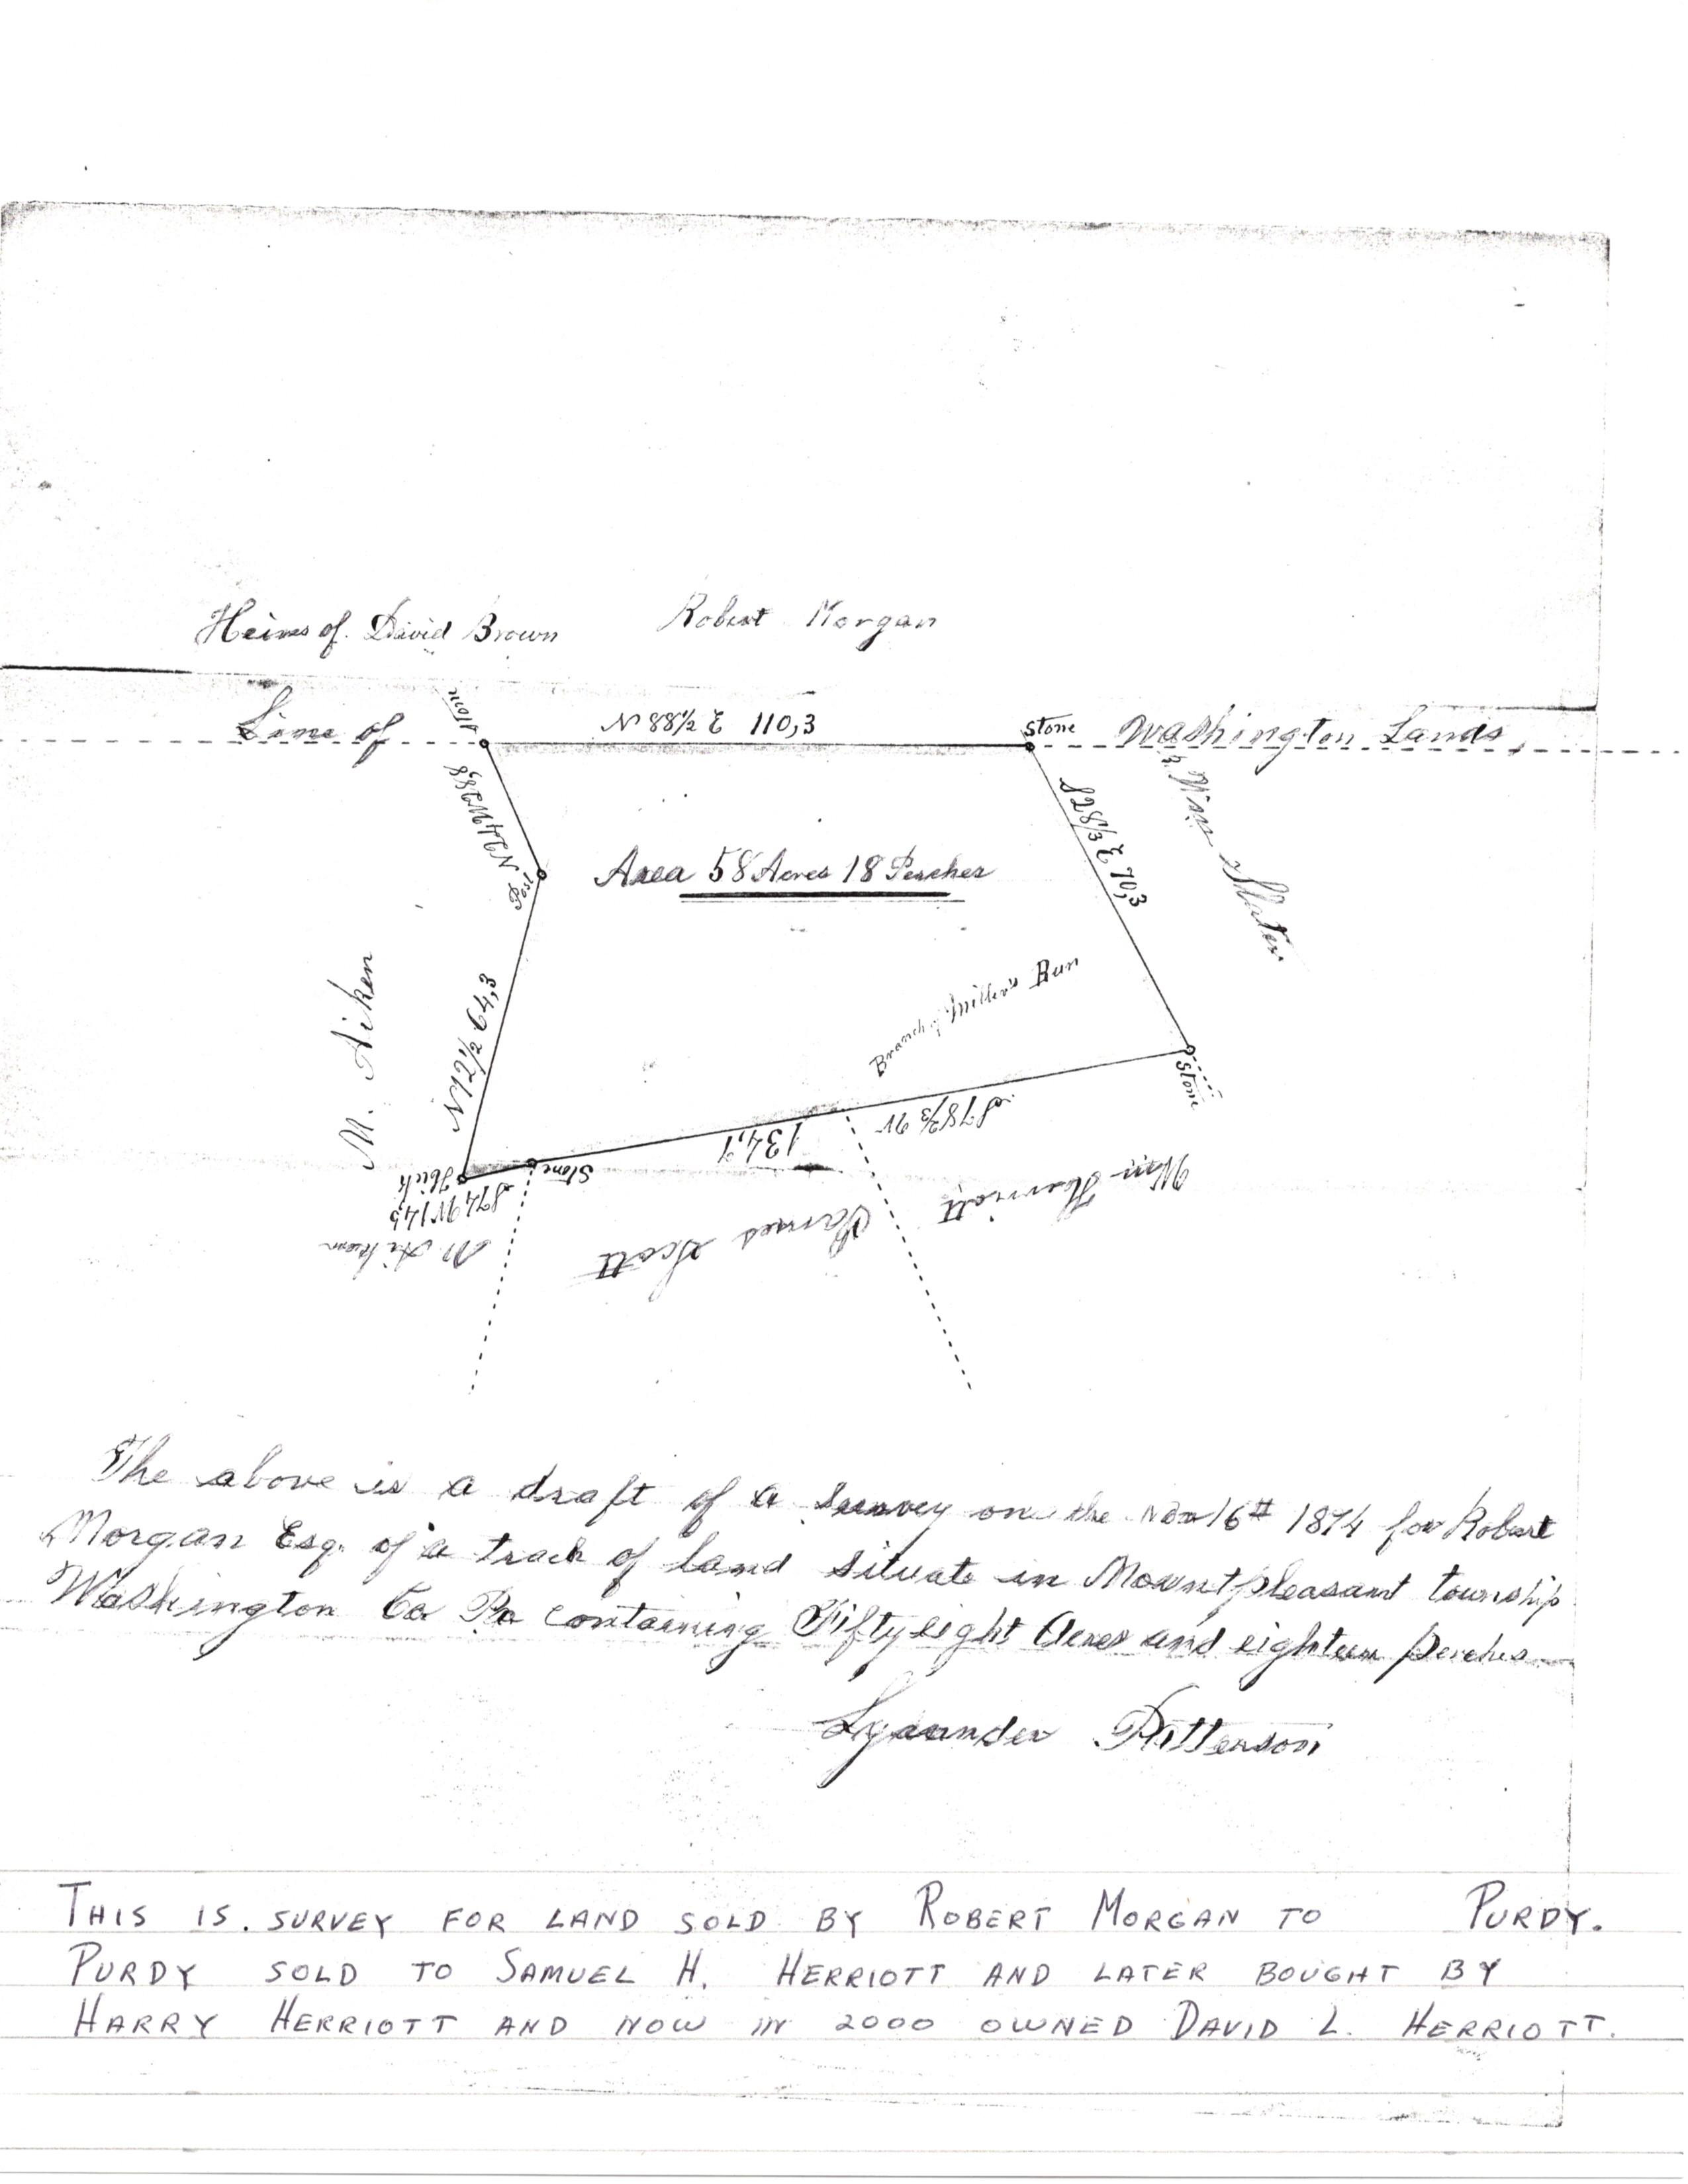 Heires of. David Brown
Robert Morgan
Line of
Stone
N 88½ E 110,3
Stone
Washington Lands,
N24W28,8
Post
Area 58 Acres 18 Perches
S28⅓ E 70,3
Wm Slater
M. Aiken
N12½ 64,3
Branch of Miller's Run
Stone
S78⅔ W
134,7
Stone
Hick
S74W14,5
M. Aiken
James Scott
Wm Herriott
The above is a draft of a Survey on the Nov 16th 1874 for Robert
Morgan Esq. of a track of land situate in Mountpleasant township
Washington Co Pa containing Fifty eight Acres and eighteen perches
Lysander Patterson
THIS IS. SURVEY FOR LAND SOLD BY ROBERT MORGAN TO PURDY.
PURDY SOLD TO SAMUEL H. HERRIOTT AND LATER BOUGHT BY
HARRY HERRIOTT AND NOW IN 2000 OWNED DAVID L. HERRIOTT.